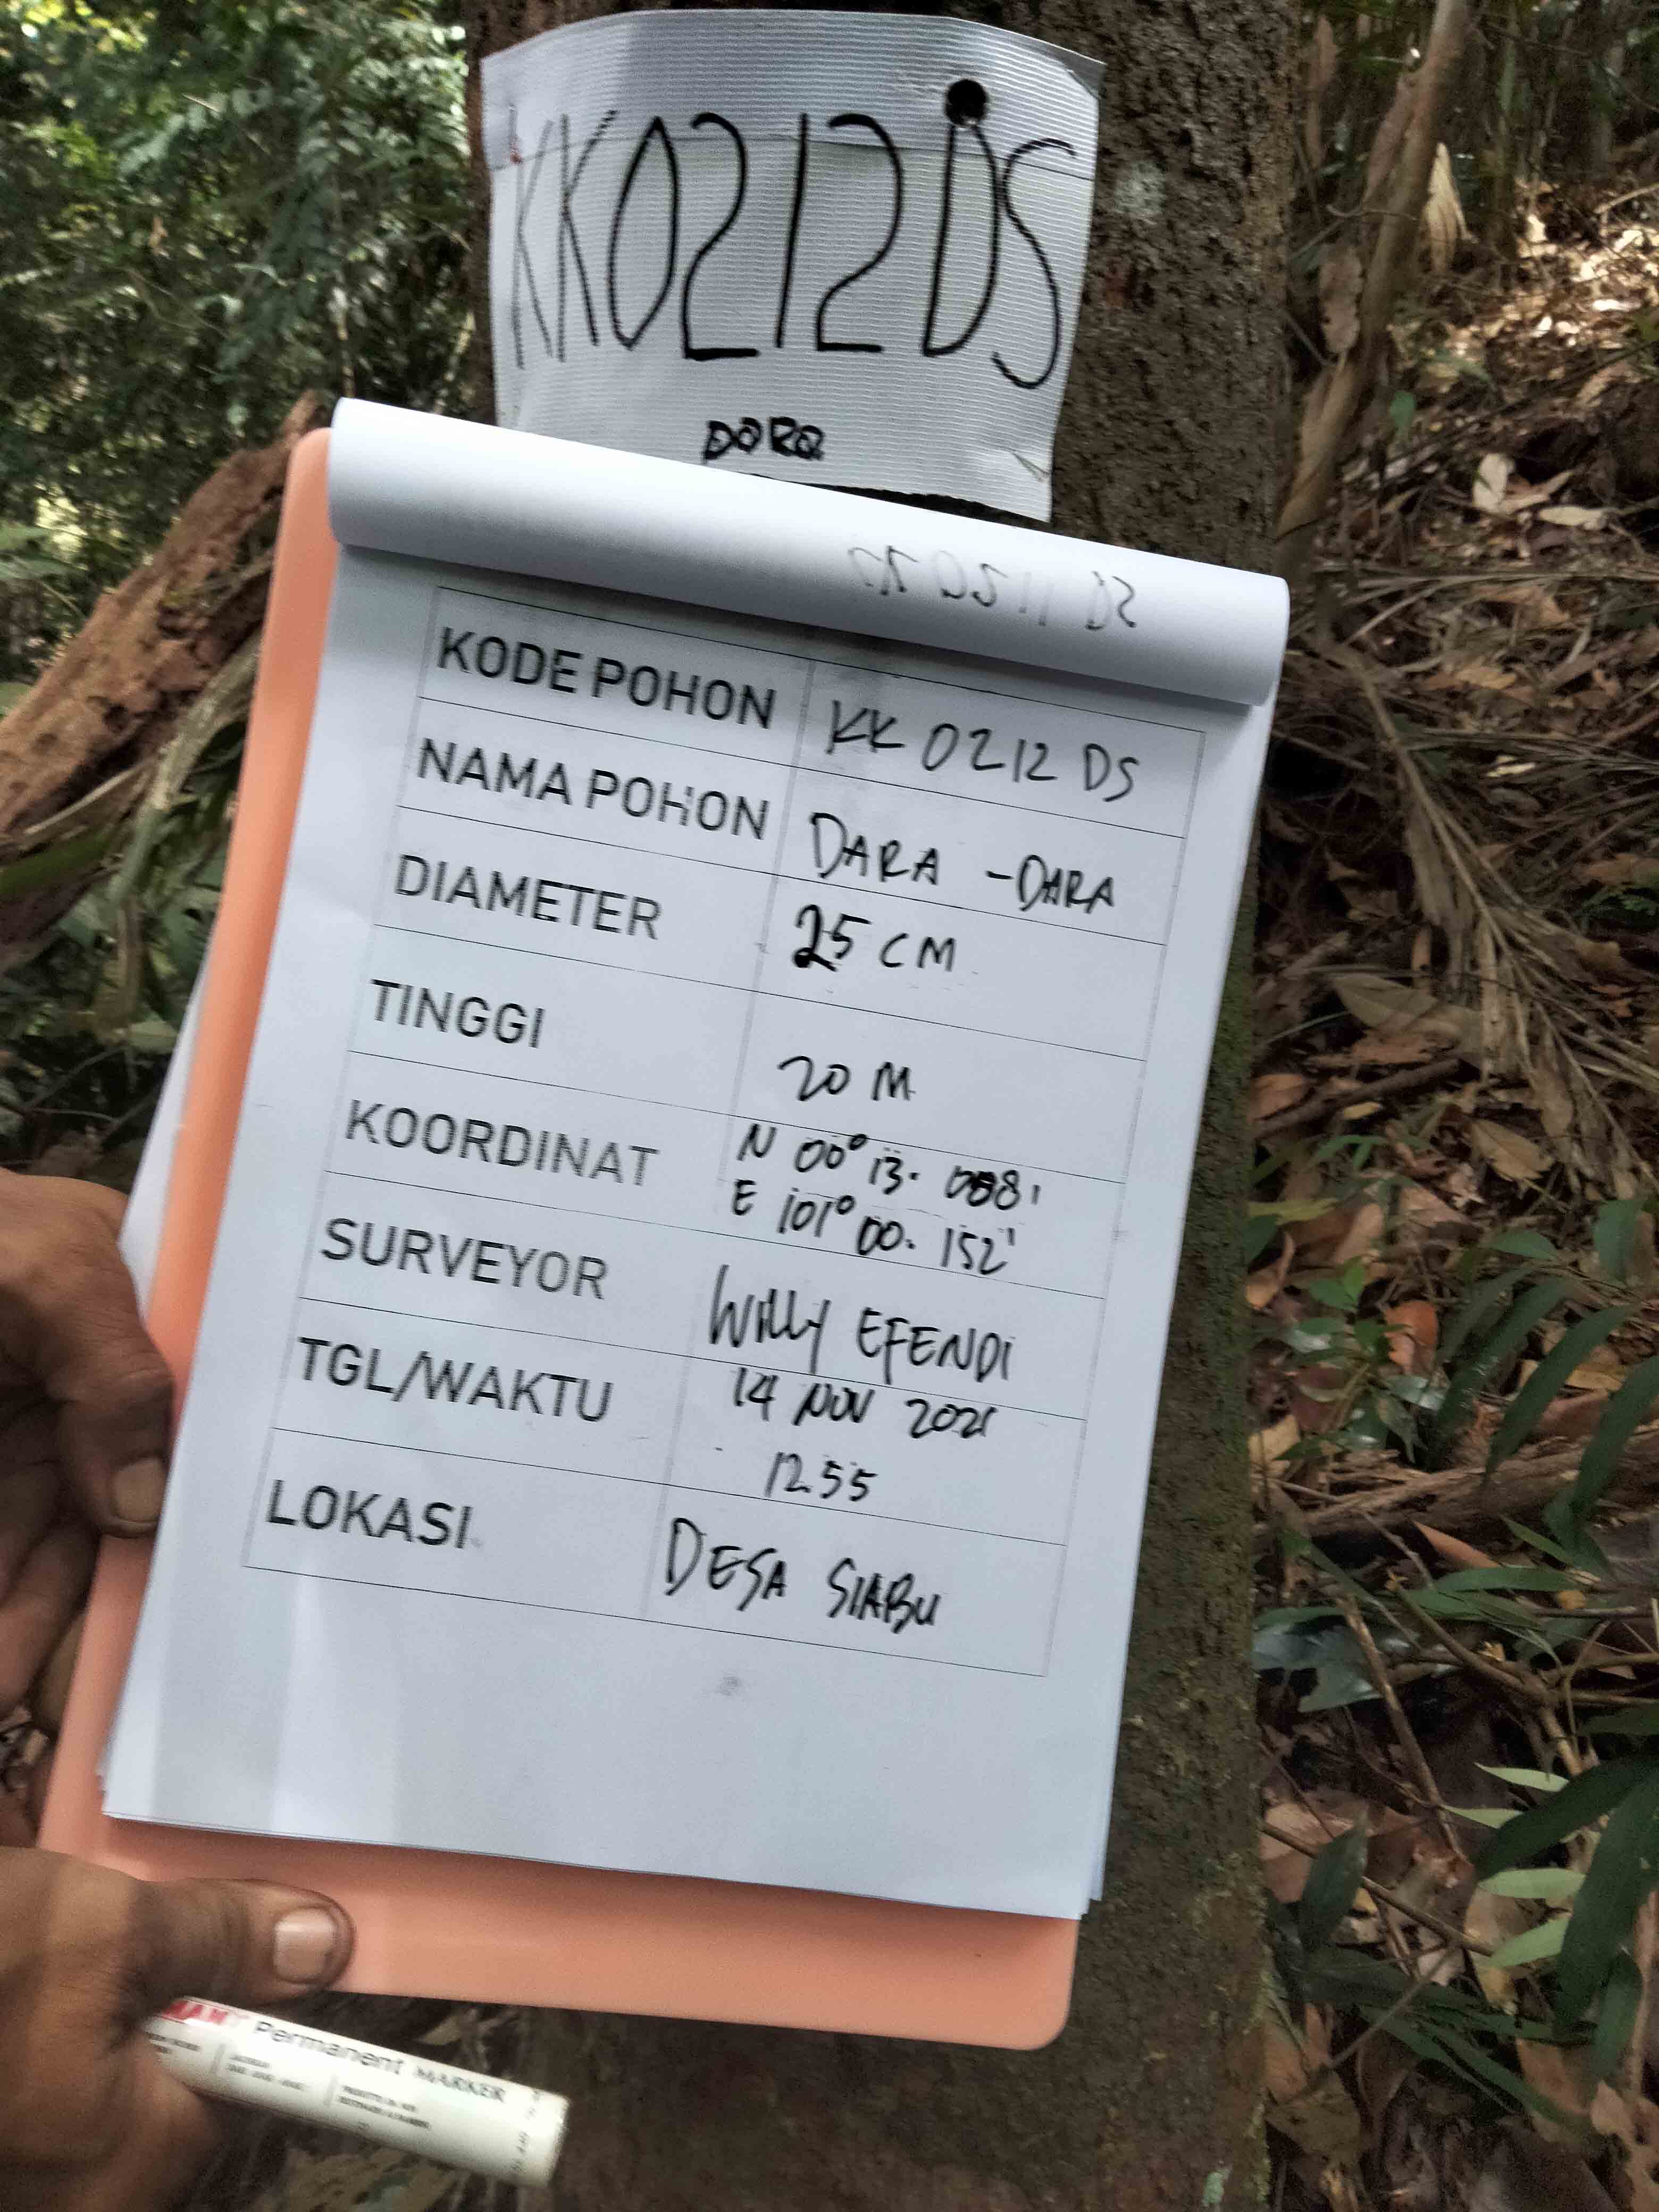 KK0212DS
DARA
KODE POHON KK 0212 DS
NAMA POHON DARA -DARA
DIAMETER 25 CM
TINGGI 20 M
KOORDINAT N 00° 13. 088'
E 101° 00. 152'
SURVEYOR WILLY EFENDI
TGL/WAKTU 14 NOV 2021
12.55
LOKASI DESA SIABU
Permanent MARKER